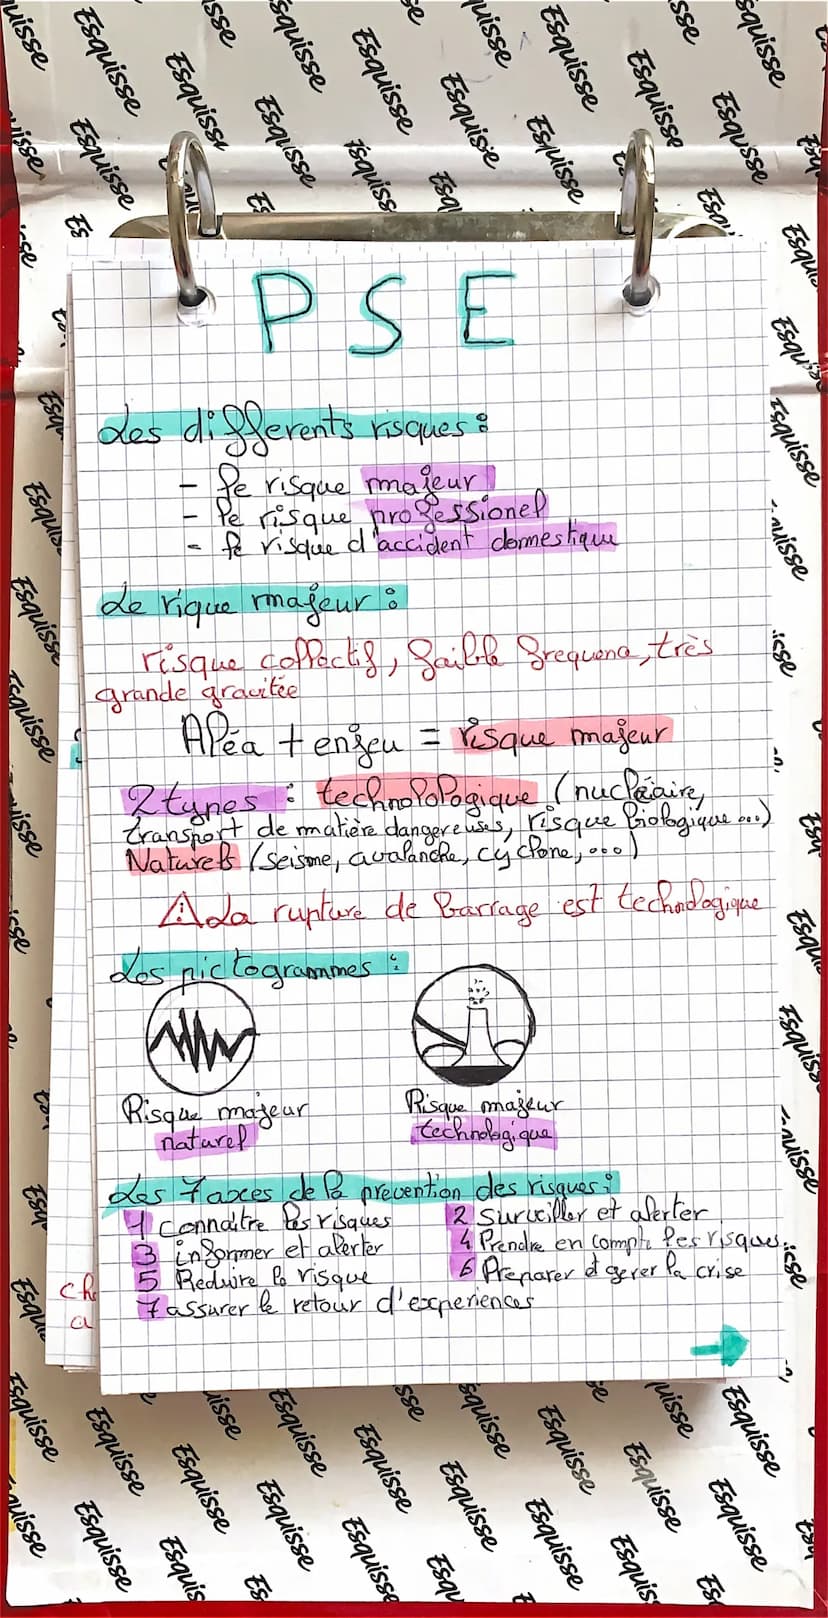 PSE
Les differents risques :
- le risque majeur
- le risque professionel
- le risque d'accident domestique
Le rique majeur :
risque collectif, faible frequenc, très
grande gravitée
Aléa + enjeu = risque majeur
2 types : technolologique (nucléaire,
transport de matière dangereuses, risque biologique ...)
Naturels (seisme, avalanche, cyclone, ...)
⚠ La rupture de barrage est technologique
Les pictogrammes :
Risque majeur
naturel
Risque majeur
technologique
Les 7 axces de la prevention des risques :
1 Connaitre les risques
2 Surveiller et alerter
3 informer et alerter
4 Prendre en compte les risques
5 Reduire le risque
6 Preparer à gerer la crise
7 assurer le retour d'experiences
ch
a
Esquisse